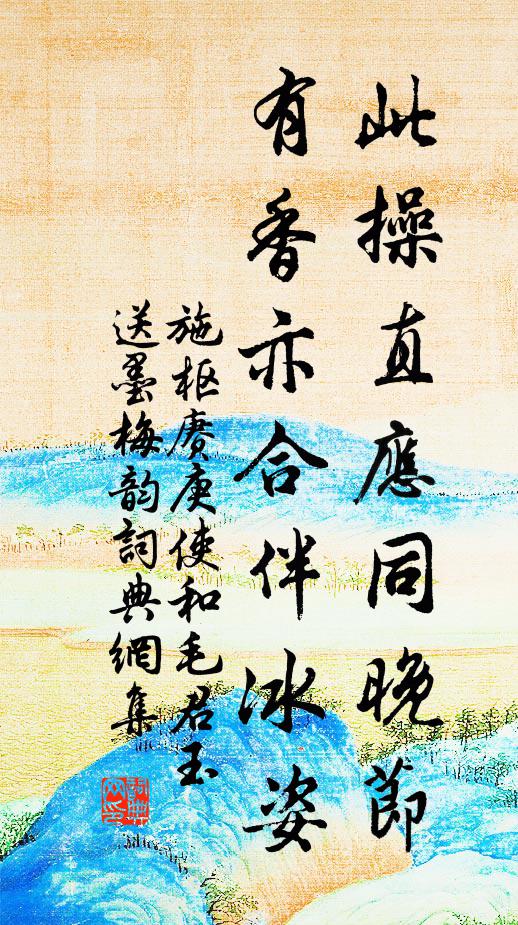 此操直應同晚節
有香亦合伴冰姿
施枢赓庾使和毛君玉
送墨梅韵詞典網集